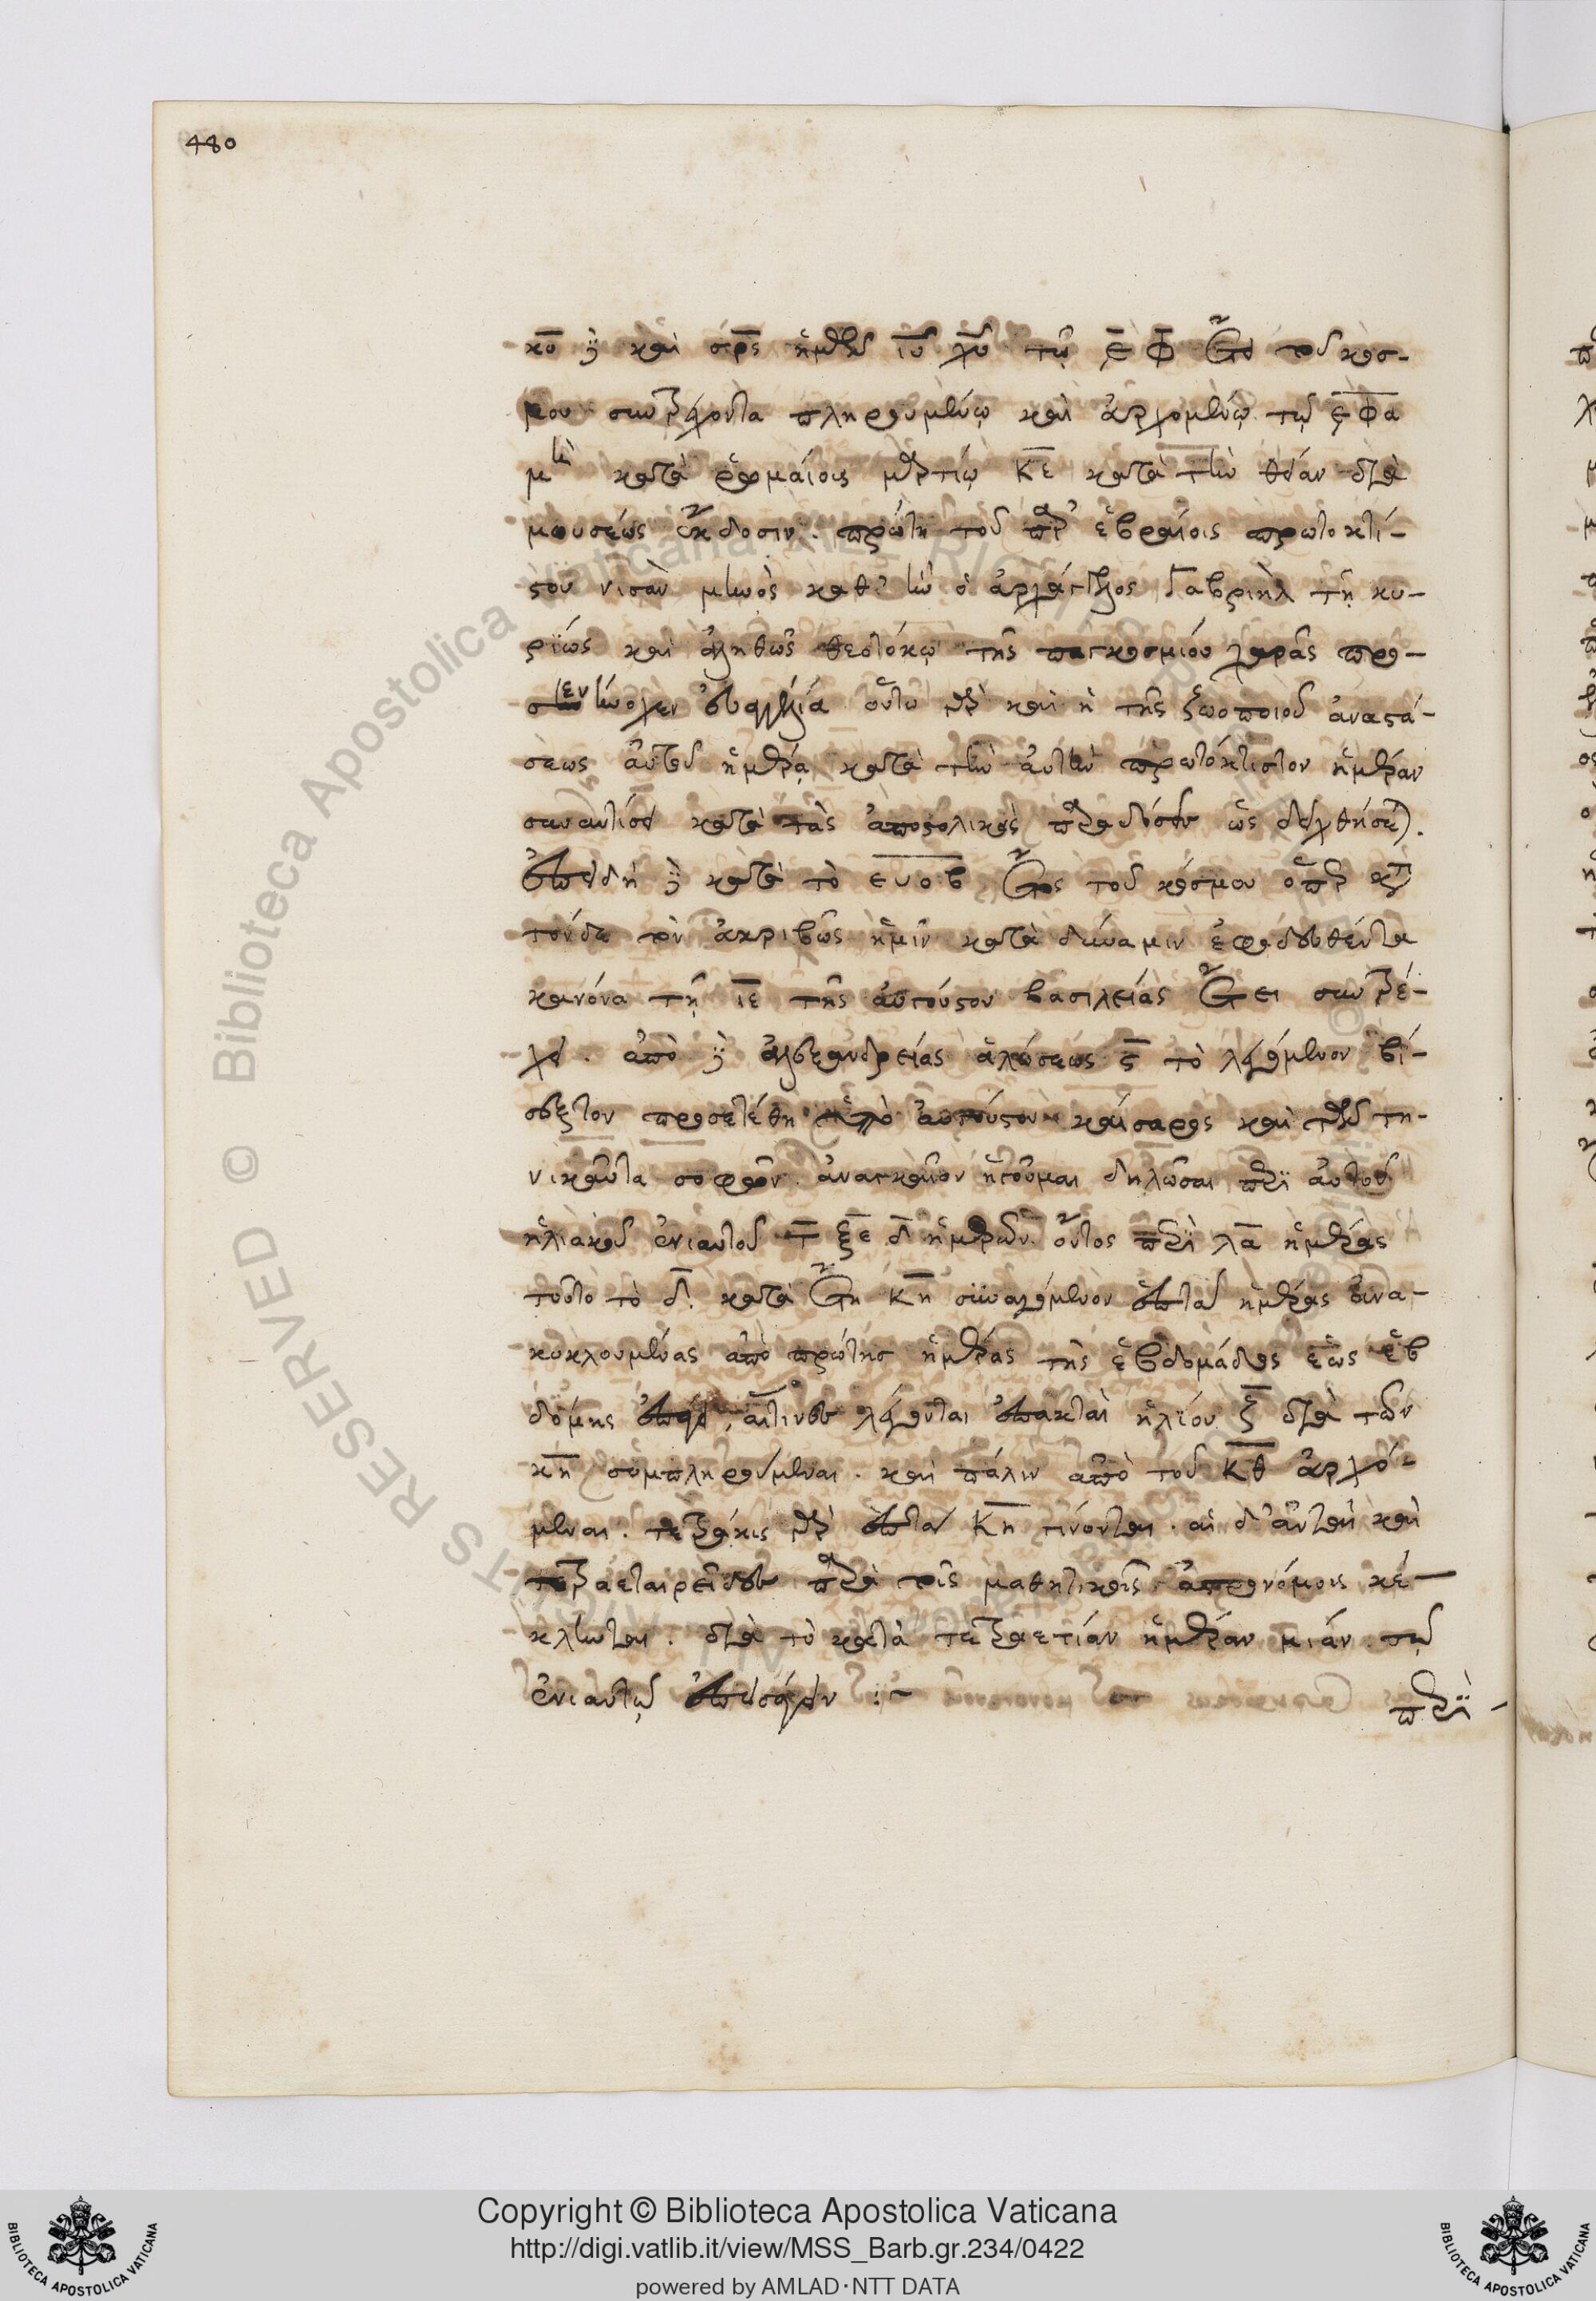 480
κυ̅ ϗ̀ καὶ σρ̅ς ἡμῶν ιυ̅ χυ̅ τῷ ͵ε̅ φ̅ ἔτει τοῦ κοσ-
μου συντρέχοντα πληρουμένῳ καὶ ἀρχομένῳ τῷ ͵ε̅φ̅α̅
μὲν κατὰ ῥωμαίοις μαρτίῳ κ̅ε̅ κατὰ τὴν θείαν διὰ
μωυσέως ἔκδοσιν. πρώτη τοῦ παρ' ἑβραίοις πρωτοκτί-
στου νισὰν μηνὸς καθ' ἣν ὁ ἀρχάγγελος Γαβριὴλ τῇ κυ-
ρίως καὶ ἀληθῶς θεοτόκῳ τῆς παγκοσμίου χαρᾶς προ-
σήνεγκεν εὐαγγέλια οὕτω γὰρ καὶ ἡ τῆς ζωοποιοῦ ἀναστά-
σεως αὐτοῦ ἡμέρα κατὰ τὴν αὐτὴν πρωτόκτιστον ἡμέραν
συναντίσει κατὰ τὰς ἀποστολικὰς παραδόσεις ὡς δειχθήσεται.
Ἐπειδὴ ϗ̀ κατὰ τὸ ͵ε̅υ̅ο̅β̅ ἔτος τοῦ κόσμου ὅπερ κατὰ
τόνδε τὸν ἀκριβῶς ἡμῖν κατὰ δύναμιν ἐφοδευθέντα
κανόνα τῇ ι̅ε̅ τῆς αὐγούστου βασιλείας ἔτει συντρέ-
χει. ἀπὸ ϗ̀ ἀλεξανδρείας ἁλώσεως ς̅ τὸ λεγόμενον βί-
σεξτον προσετέθη ὑπὸ αὐγούστου καίσαρος καὶ τῶν τη-
νικαῦτα σοφῶν. ἀναγκαῖον ἡγοῦμαι δηλῶσαι περὶ αὐτοῦ
ἡλιακοῦ ἐνιαυτοῦ τ̅ ξ̅ε̅ δ̅ ἡμερῶν. οὗτος περὶ λ̅α̅ ἡμέρας
τοῦτο τὸ δ̅. κατὰ ἔτη κ̅η̅ συναγόμενον ἑπτὰ ἡμέρας ἀνα-
κυκλουμένας ἀπὸ πρώτης ἡμέρας τῆς ἑβδομάδος ἕως ἑβ
δόμης ποιεῖ, αἵτινες λέγονται ἐπακταὶ ἡλίου ζ̅ διὰ τῶν
κ̅η̅ συμπληρούμεναι. καὶ πάλιν ἀπὸ τοῦ κ̅θ̅ ἀρχό-
μεναι. τετράκις γὰρ ἑπτὰ κ̅η̅ γίνονται. αἱ δ' αὐταὶ καὶ
τετραεταιρείδες παρὰ τοῖς μαθητικοῖς ἀστρονόμοις κέ-
κληνται. διὰ τὸ κατὰ τετραετίαν ἡμέραν μίαν τῷ
ἐνιαυτῷ ἐπεισάγειν :~
περὶ
Copyright © Biblioteca Apostolica Vaticana
http://digi.vatlib.it/view/MSS_Barb.gr.234/0422
powered by AMLAD·NTT DATA